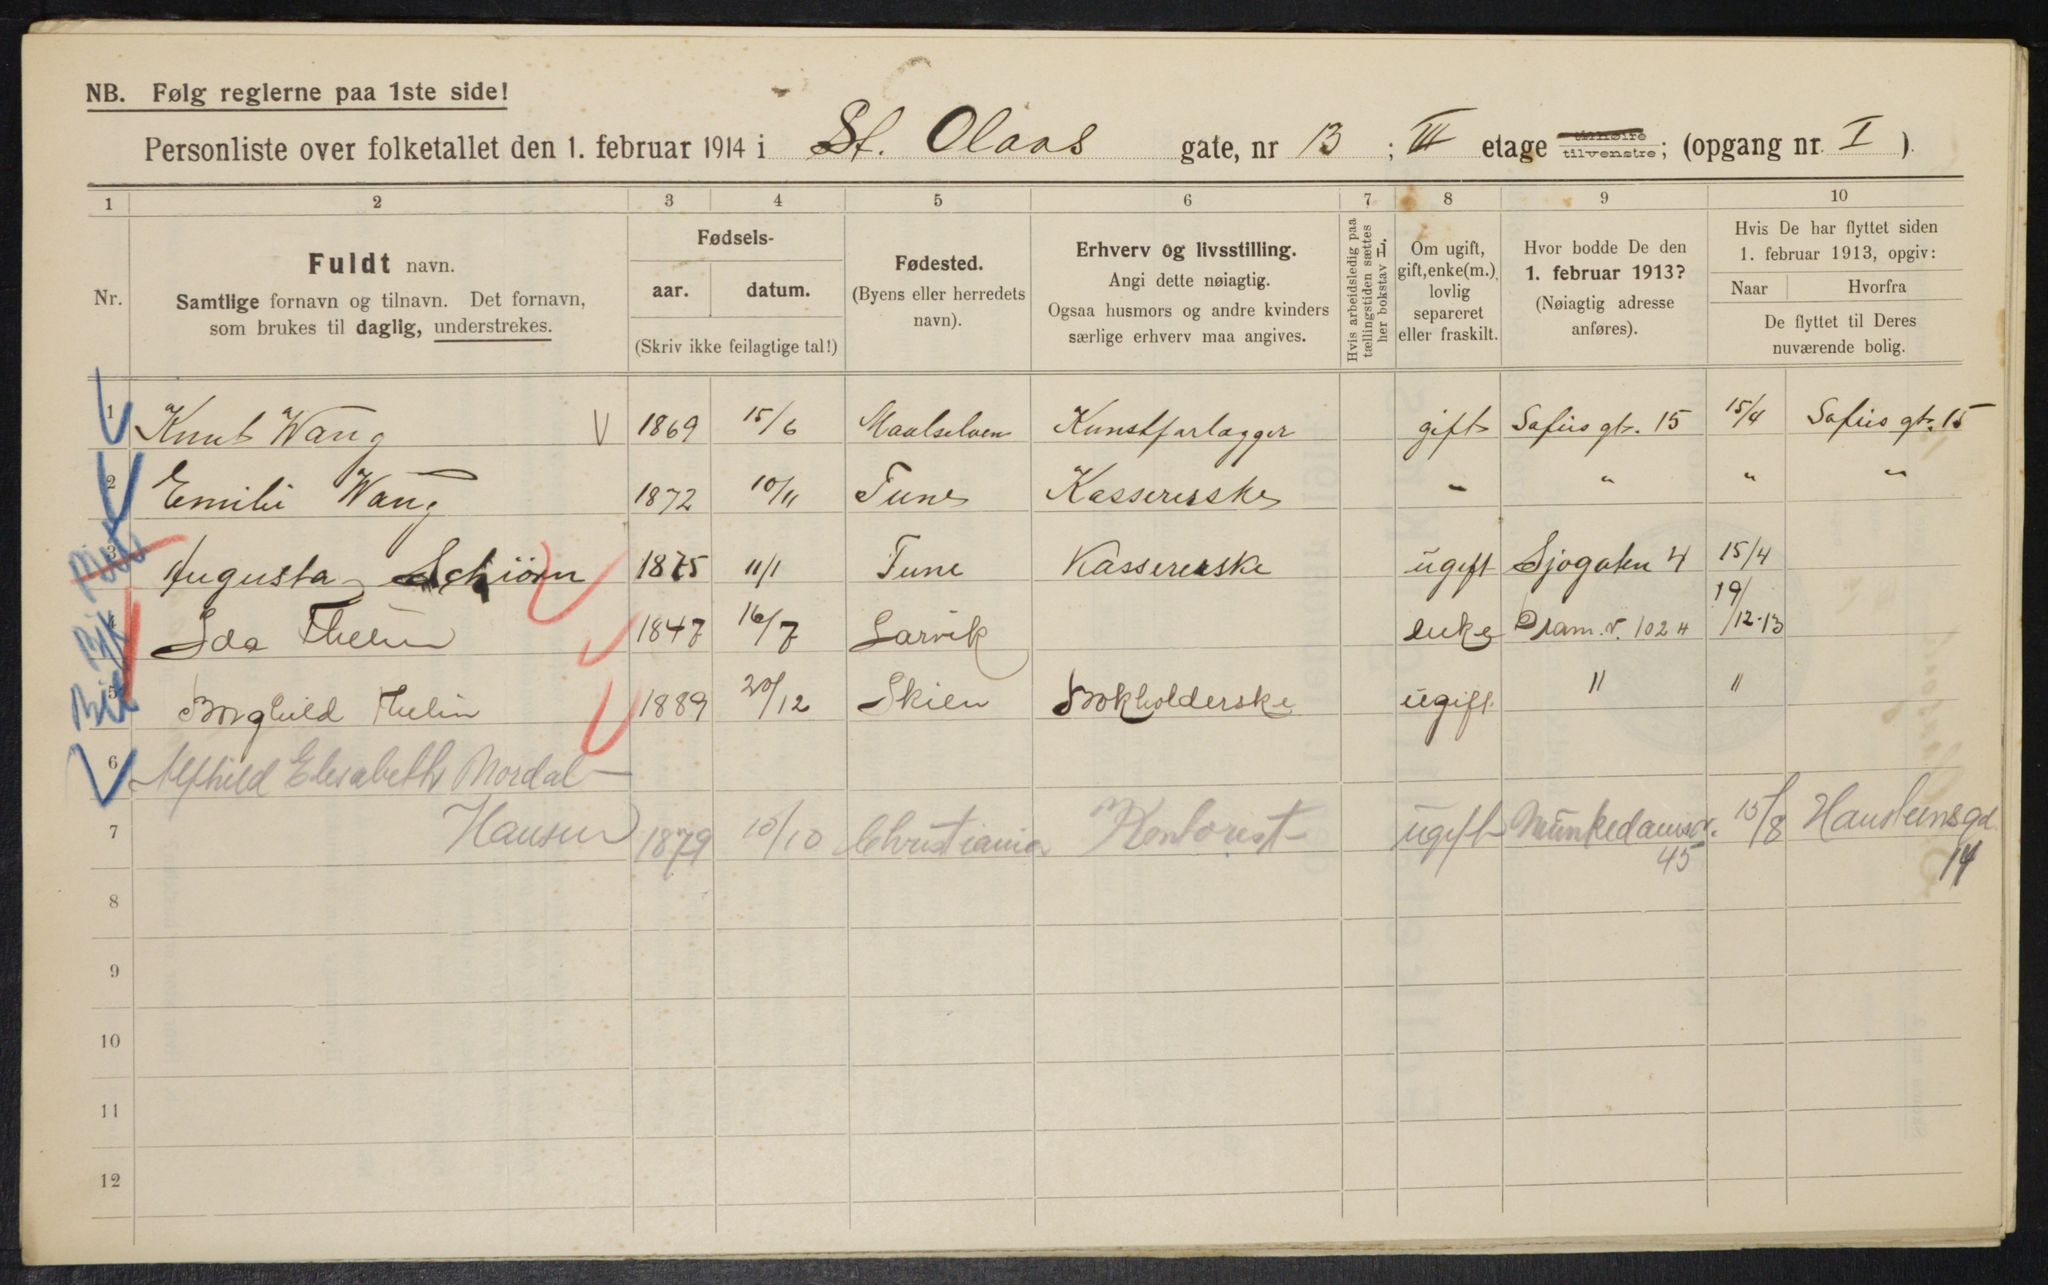 NB. Følg reglerne paa 1ste side!
Personliste over folketallet den 1. februar 1914 i St. Olaas gate, nr 13 ; III etage tilhøire tilvenstre; (opgang nr. I ).
1 2 3 4 5 6 7 8 9 10
Nr.
Fuldt navn.
Samtlige fornavn og tilnavn. Det fornavn,
som brukes til daglig, understrekes.
Fødsels-
aar. datum.
(Skriv ikke feilagtige tal!)
Fødested.
(Byens eller herredets
navn).
Erhverv og livsstilling.
Angi dette nøiagtig.
Ogsaa husmors og andre kvinders
særlige erhverv maa angives.
Hvis arbeidsledig paa
tællingstiden sættes
her bokstav L.
Om ugift,
gift, enke(m.),
lovlig
separeret
eller fraskilt.
Hvor bodde De den
1. februar 1913?
(Nøiagtig adresse
anføres).
Hvis De har flyttet siden
1. februar 1913, opgiv:
Naar Hvorfra
De flyttet til Deres
nuværende bolig.
1 Knut Wang 1869 15/6 Maalselven Kunstforlægger gift Sofies gt. 15 15/4 Sofies gt. 15
2 Emilie Wang 1872 10/11 Tune Kassererske " " " "
3 Augusta Schiörn 1875 11/1 Tune Kassererske ugift Sjøgaten 4 15/4
4 Ida Thelin 1847 16/7 Larvik enke Dram.v. 102 19/12-13
5 Borghild Thelin 1889 20/12 Skien Bokholderske ugift " "
6 Alfhild Elisabeth Nordal-
7 Hansen 1879 10/10 Christiania Kontorist ugift Munkedamsv. 45 15/8 Hausteensgd. 14
8
9
10
11
12